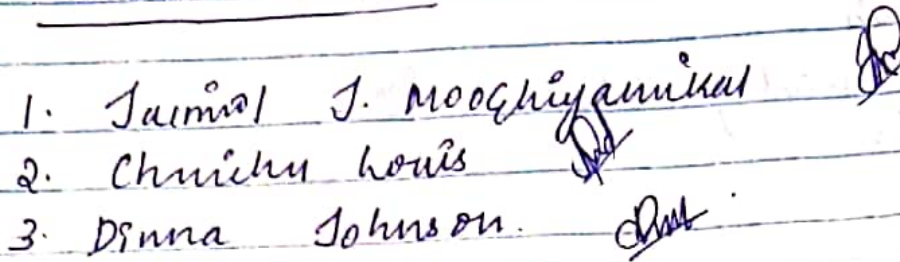 1. Jaimol J. Mooghiyamikal
2. Chnichu Louis
3. Dinna Johnson.